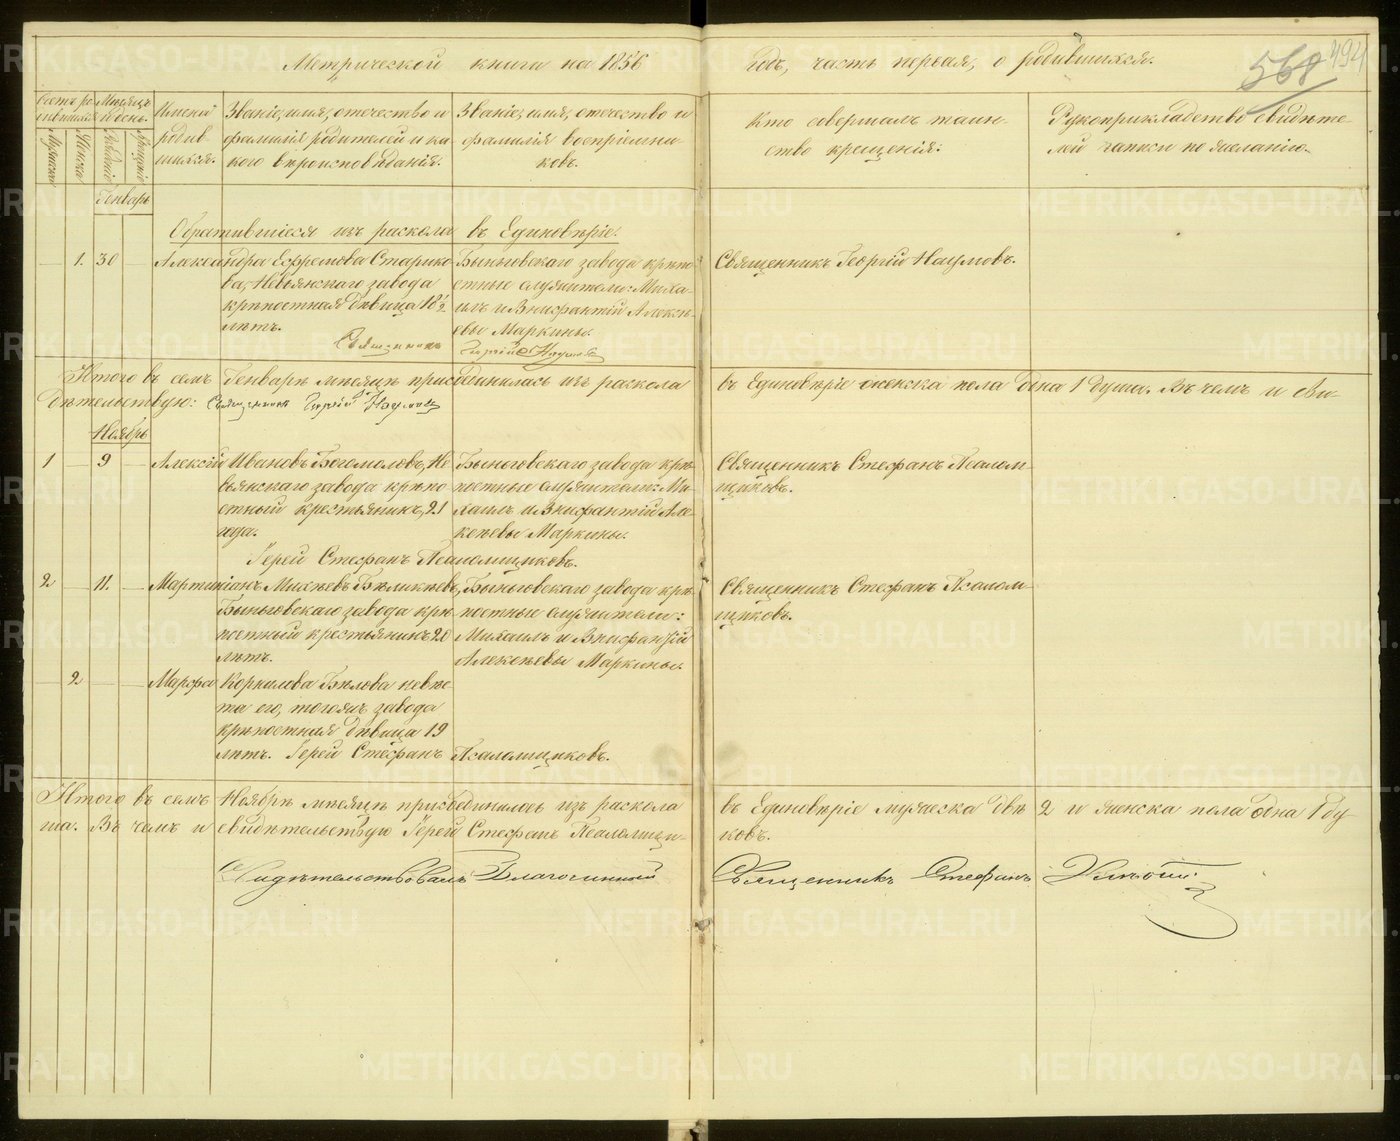 Метрической книги на 1856 годъ, часть первая, о родившихся.
568 494
Счетъ родившихся
Мужеска
Женска
Мѣсяцъ и день
Рожденіе
Крещеніе
Имена родившихся.
Званіе, имя, отечество и фамилія родителей и какого вѣроисповѣданія.
Званіе, имя, отечество и фамилія воспріемниковъ.
Кто совершалъ таинство крещенія.
Рукоприкладство свидѣтелей записи по желанію.
Генварь
Обратившіеся изъ раскола въ Единовѣріе.
1. 30
Александра Ефремова Старикова, Невьянскаго завода крѣпостная дѣвица 18 1/2 лѣтъ.
Быньговскаго завода крѣпостные служители: Михаилъ и Внифантій Алексѣевы Маркины.
Священникъ Георгій Наумовъ.
Священникъ Георгій Наумовъ
Итого въ семъ Генварѣ мѣсяцѣ присоединилась изъ раскола въ Единовѣріе женска пола одна 1 душа. Въ чемъ и сви-
дѣтельствую: Священникъ Георгій Наумовъ
Ноябрь
1 9
Алексій Ивановъ Богомоловъ, Невьянскаго завода крѣпостный крестьянинъ, 21 года.
Быньговскаго завода крѣпостные служители: Михаилъ и Внифантій Алексѣевы Маркины.
Священникъ Стефанъ Псаломщиковъ.
Іерей Стефанъ Псаломщиковъ.
2 11.
Мартиніанъ Михѣевъ Бѣликѣевъ, Быньговскаго завода крѣпостный крестьянинъ 20 лѣтъ.
Быньговскаго завода крѣпостные служители: Михаилъ и Внифантій Алексѣевы Маркины.
Священникъ Стефанъ Псаломщиковъ.
2
Марфа Корнилова Бѣлова невѣста его, тогожъ завода крѣпостная дѣвица 19 лѣтъ. Іерей Стефанъ Псаломщиковъ.
Итого въ семъ Ноябрѣ мѣсяцѣ присоединилось изъ раскола въ Единовѣріе мужеска двѣ 2 и женска пола одна 1 ду
ша. Въ чемъ и свидѣтельствую Іерей Стефанъ Псаломщиковъ.
Свидѣтельствовалъ Благочинный Священникъ Стефанъ
METRIKI.GASO-URAL.RU